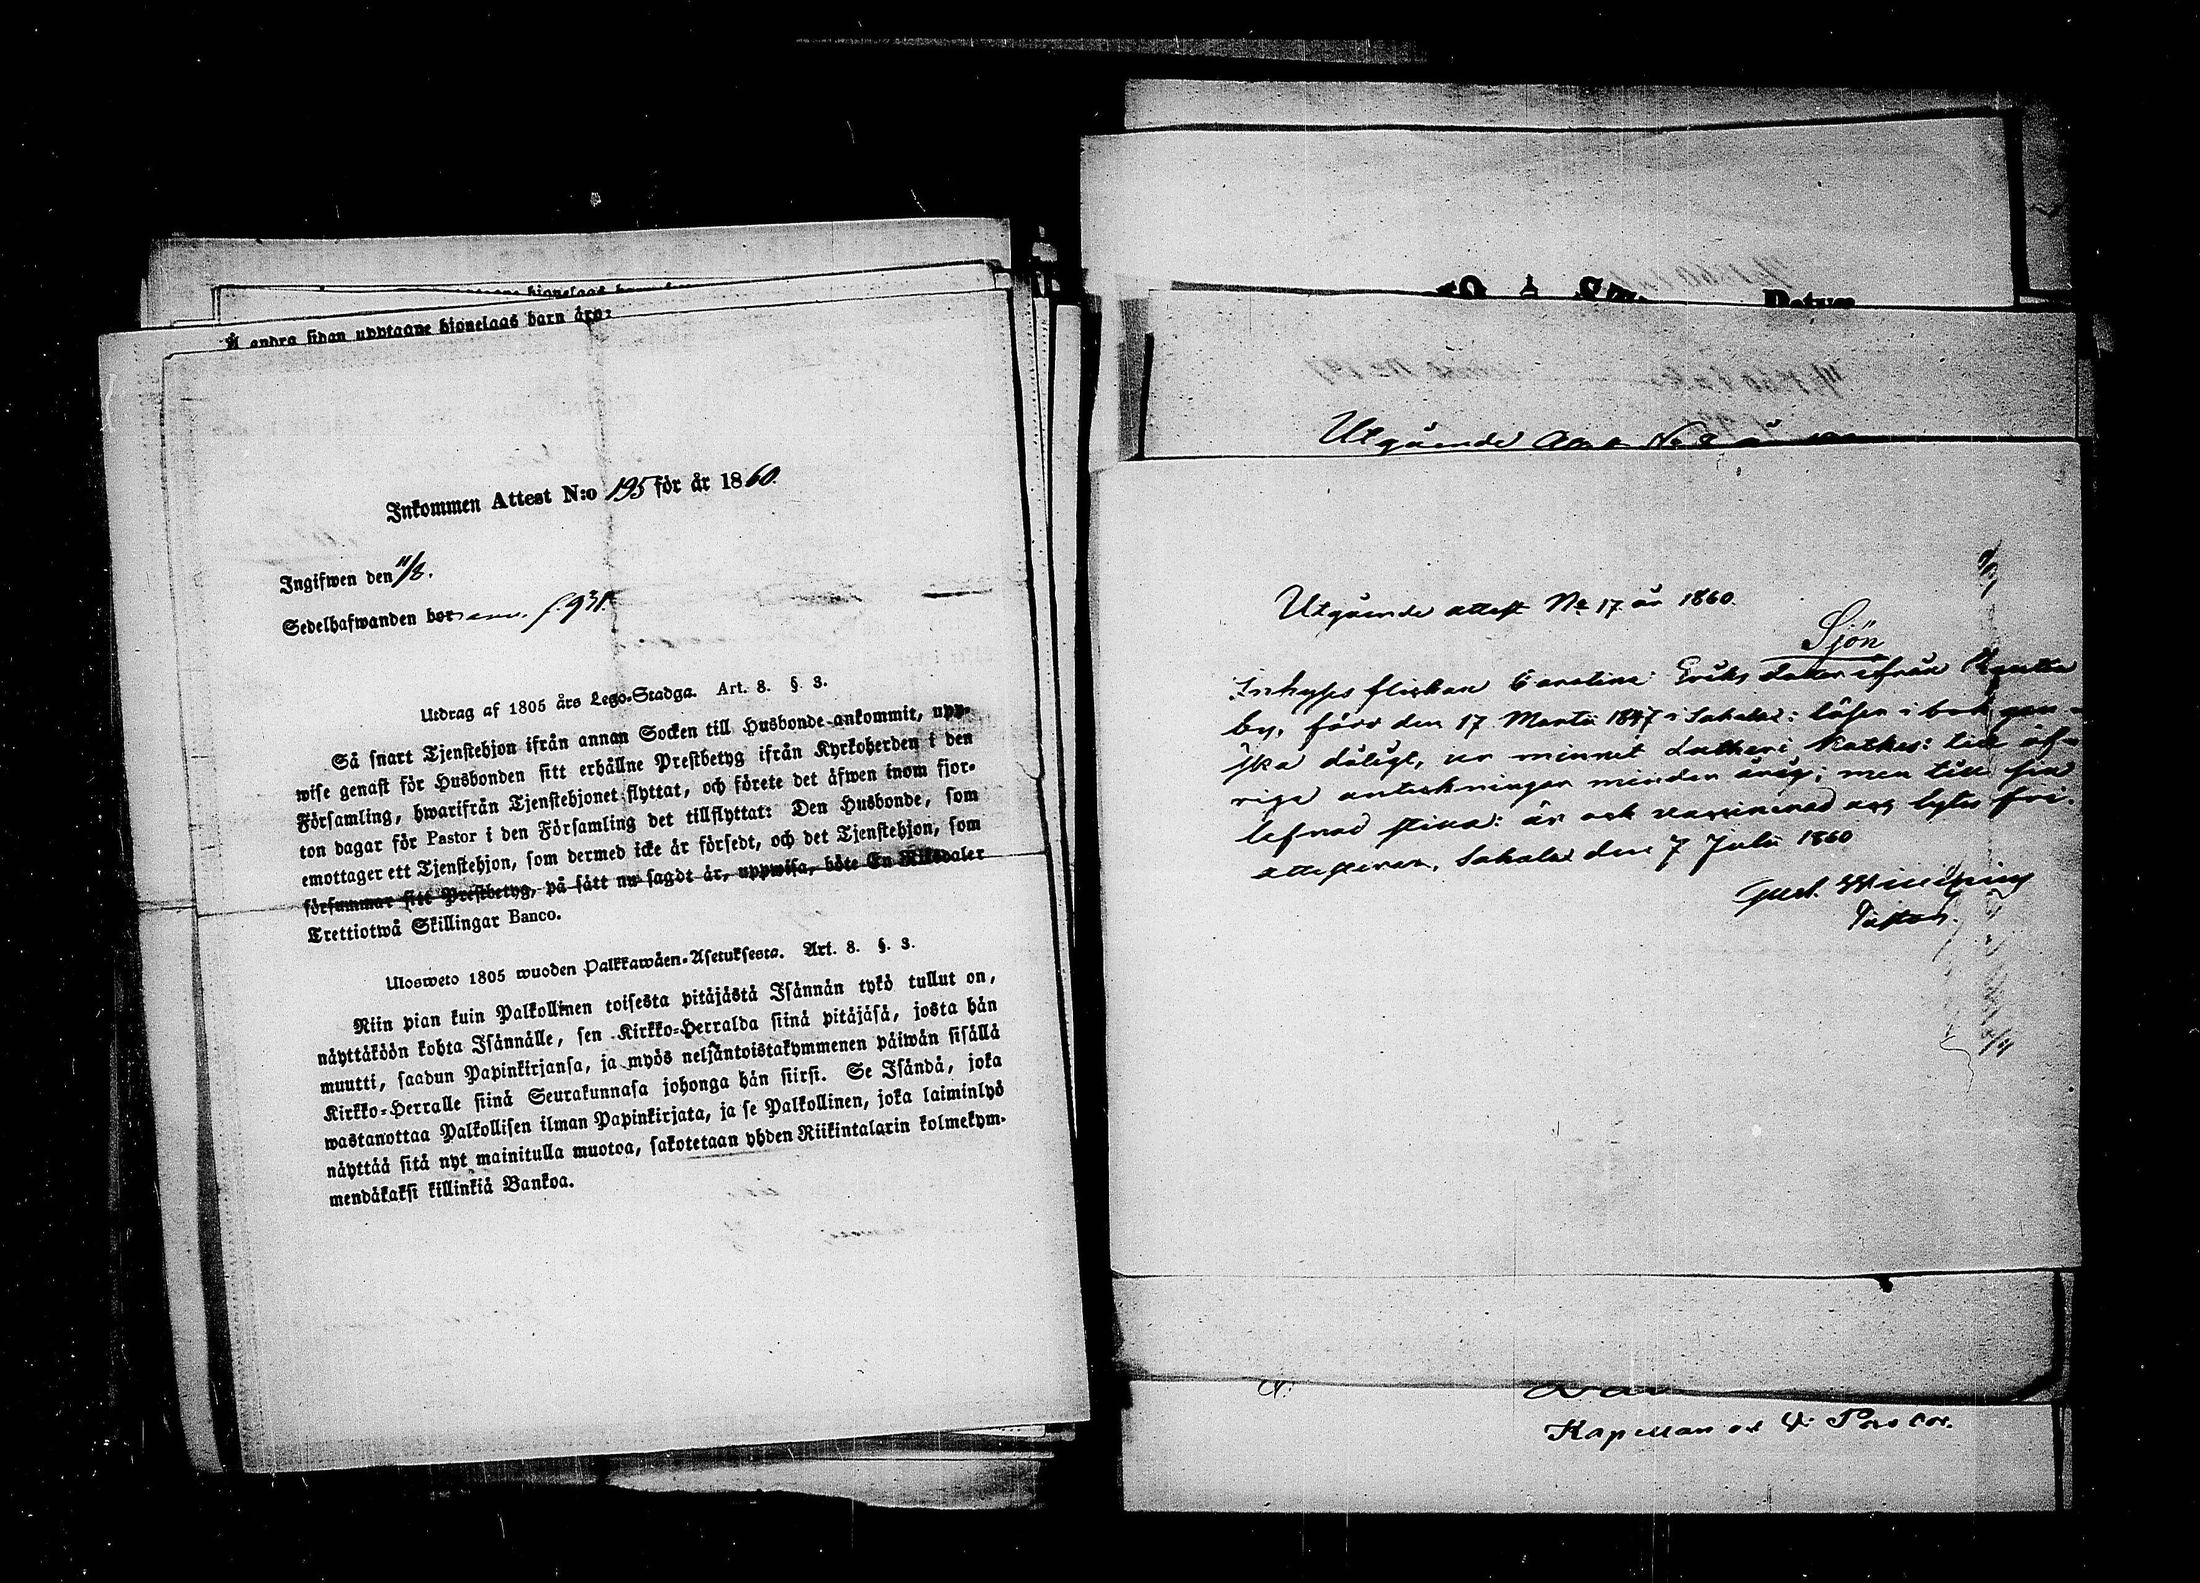 Å andra sidan upptagne hjonelags barn äro:
Inkommen Attest N:o 195 för år 1860.
Ingifwen den 11/8.
Sedelhafwanden bor f. 931.
Utdrag af 1805 års Lego-Stadga. Art. 8. §. 3.
Så snart Tjenstehjon ifrån annan Socken till Husbonde ankommit, upp-
wise genast för Husbonden sitt erhållne Prestbetyg ifrån Kyrkoherden i den
Församling, hwarifrån Tjenstehjonet flyttat, och förete det äfwen inom fjor-
ton dagar för Pastor i den Församling det tillflyttat: Den Husbonde, som
emottager ett Tjenstehjon, som dermed icke är försedt, och det Tjenstehjon, som
försummar sitt Prestbetyg, på sätt nu sagdt är, uppwisa, böte En Riksdaler
Trettiotwå Skillingar Banco.
Ulosweto 1805 wuoden Palkkawäen-Asetuksesta. Art. 8. §. 3.
Niin pian kuin Palkollinen toisesta pitäjästä Isännän tykö tullut on,
näyttäköön kohta Isännälle, sen Kirkko-Herralda siinä pitäjäsä, josta hän
muutti, saadun Papinkirjansa, ja myös neljäntoistakymmenen päiwän sisällä
Kirkko-Herralle siinä Seurakunnasa johonga hän siirsi. Se Isändä, joka
wastanottaa Palkollisen ilman Papinkirjata, ja se Palkollinen, joka laiminlyö
näyttää sitä nyt mainitulla muotoa, sakotetaan yhden Riikintalarin kolmekym-
mendäkaksi killinkiä Bankoa.
Utgående
Utgående attest No 17 år 1860.
Sjön
Inhyses flickan Carolina Eriks dotter ifrån
by, född den 17 Martii 1847 i Sahalax: läser i bok gan-
ska dåligt, ur minnet Lutheri Katkes: till öf-
riga anteckningar minder årig; men till sin
lefnad stilla: är ock vaccinerad och lytes fri.
attesterar, Sahalax den 7 Julii 1860
Gust.
Pastor.
Kapellan och V: Pastor.